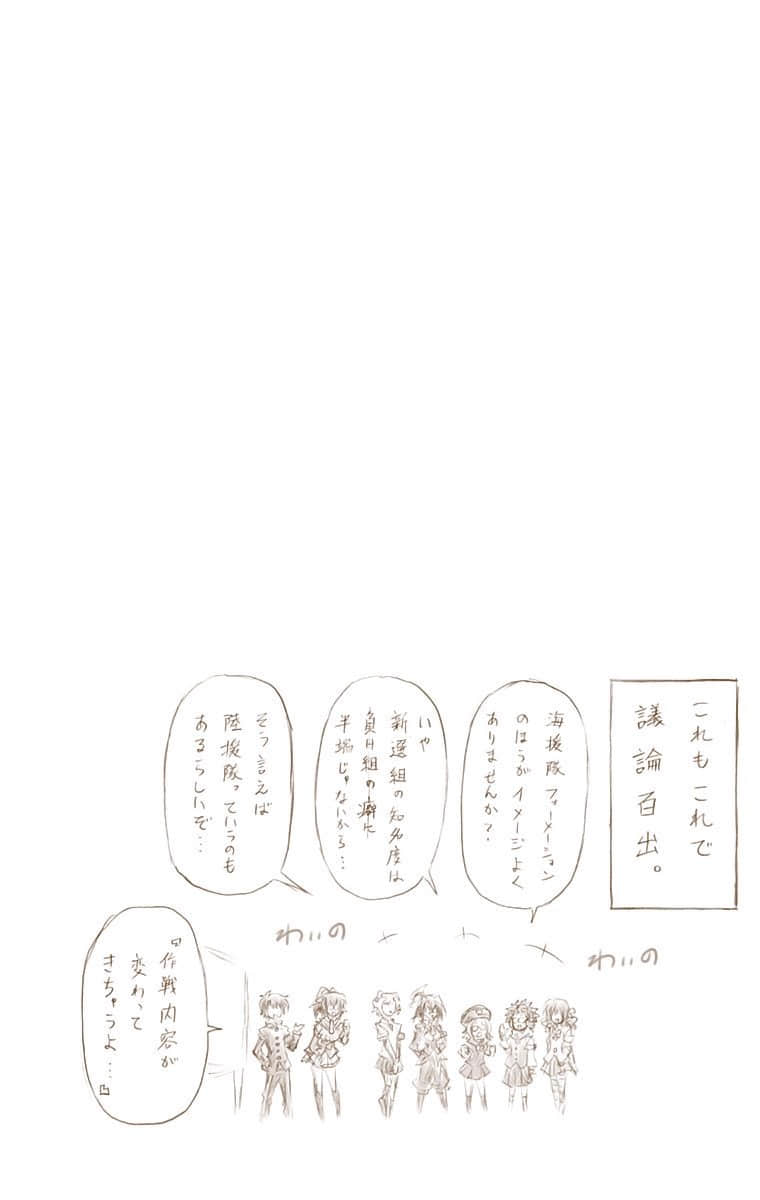 これもこれで
議論百出。
海援隊フォーメーション
のほうがイメージよく
ありませんか?
いや
新選組の知名度は
負け組の癖に
半端じゃないから…
そう言えば
陸援隊っていうのも
あるらしいぞ…
わいの
わいの
『作戦内容が
変わって
きちゃうよ…』